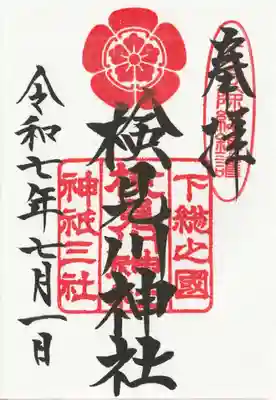 奉拝
下総之國
検見川神社
神祇三社
令和七年七月一日